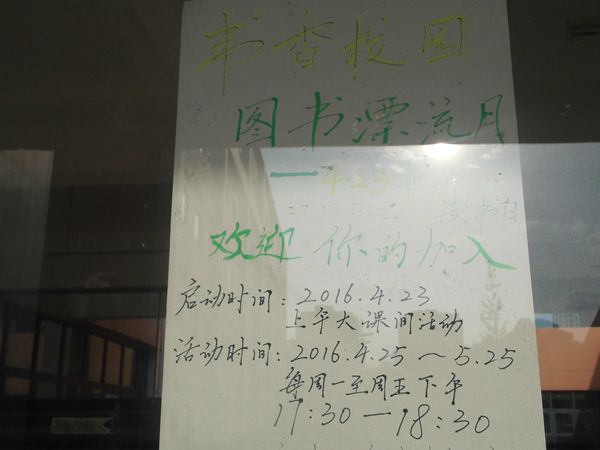 书香校园
图书漂流月
—423世
读书日
欢迎 你的加入
启动时间：2016.4.23
上午大课间活动
活动时间：2016.4.25～5.25
每周一至周五下午
17:30—18:30